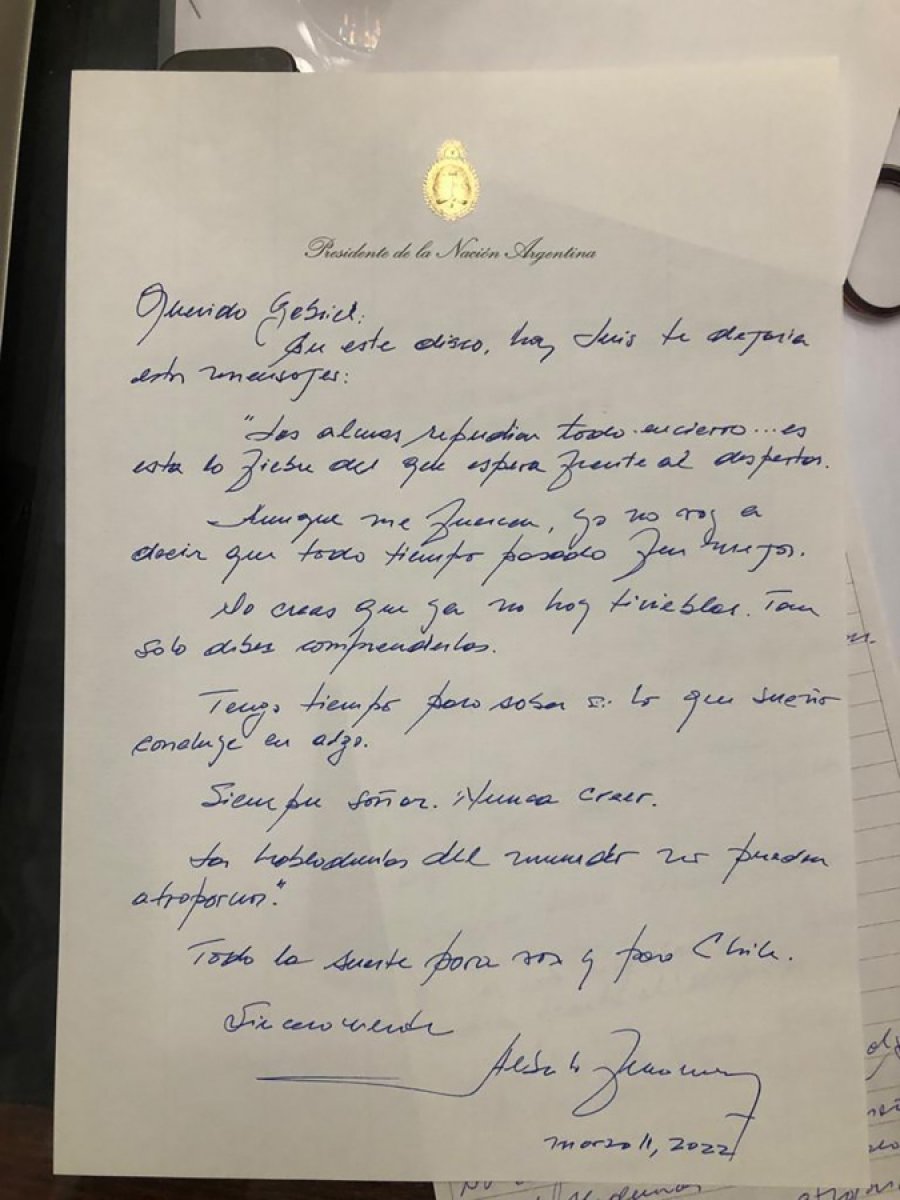 Presidente de la Nación Argentina
Querido Gabriel:
En este disco, hoy Luis te dejaria
estos mensajes:
"Las almas repudian todo encierro... es
esta la fiebre del que espera frente al despertar.
Aunque me fuercen, yo no voy a
decir que todo tiempo pasado fue mejor.
No creas que ya no hay tinieblas. Tan
solo debes comprenderlas.
Tengo tiempo para saber si lo que sueño
concluye en algo.
Siempre soñar. Nunca creer.
Las habladurías del mundo no pueden
atraparnos."
Toda la suerte para vos y para Chile.
Sinceramente
Alberto Fernández
marzo 11, 2022